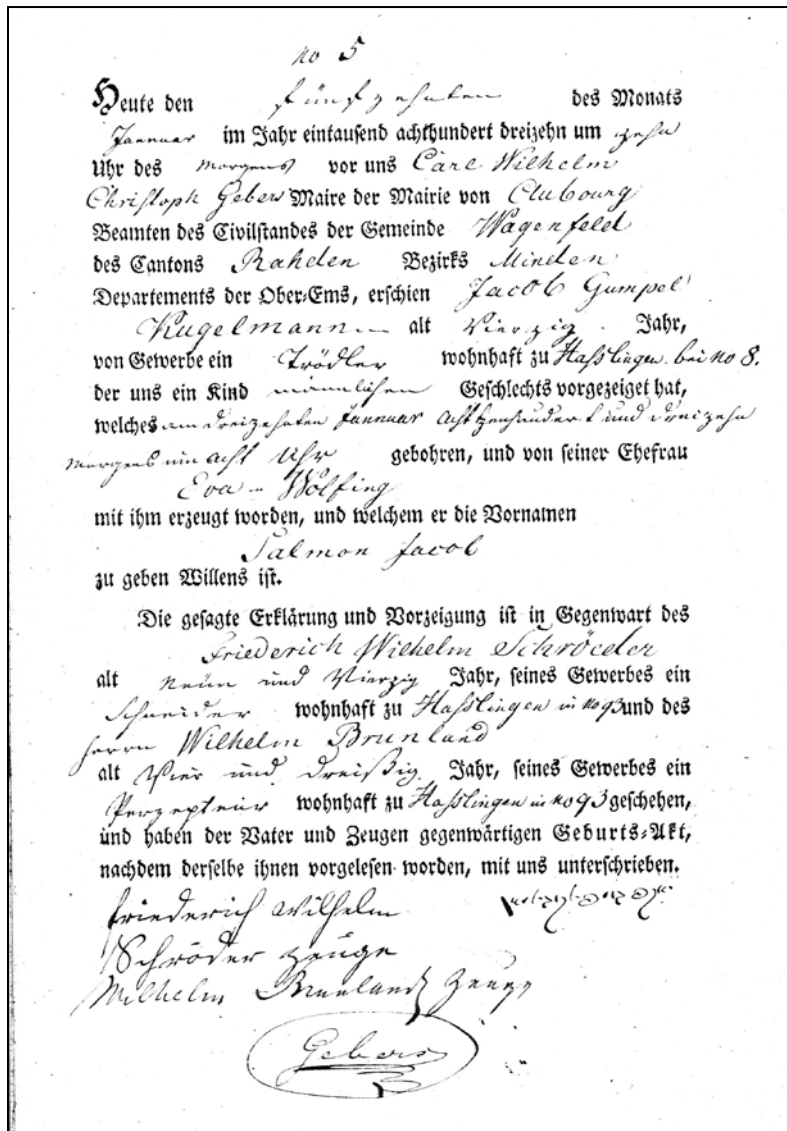 no 5
Heute den fünfzehnten des Monats
Januar im Jahr eintausend achthundert dreizehn um zehn
Uhr des Morgens vor uns Carl Wilhelm
Christoph Gebers Maire der Mairie von Aubourg
Beamten des Civilstandes der Gemeinde Wagenfeld
des Cantons Rahden Bezirks Minden
Departements der Ober-Ems, erschien Jacob Gumpel
Kugelmann alt Vierzig Jahr,
von Gewerbe ein Trödler wohnhaft zu Hasslingen bei no 8.
der uns ein Kind männlichen Geschlechts vorgezeiget hat,
welches am dreizehnten Januar achtzenhundert und dreizehn
morgens um acht Uhr gebohren, und von seiner Ehefrau
Eva Wolfing
mit ihm erzeugt worden, und welchem er die Vornamen
Salmon Jacob
zu geben Willens ist.
Die gesagte Erklärung und Vorzeigung ist in Gegenwart des
Friederich Wilhelm Schröeder
alt neun und Vierzig Jahr, seines Gewerbes ein
Schneider wohnhaft zu Hasslingen in no 93 und des
Herrn Wilhelm Brunland
alt Vier und dreißig Jahr, seines Gewerbes ein
Perzepteur wohnhaft zu Hasslingen in no 93 geschehen,
und haben der Vater und Zeugen gegenwärtigen Geburts-Akt,
nachdem derselbe ihnen vorgelesen worden, mit uns unterschrieben.
Friederich Wilhelm
Schröder zeuge
Wilhelm Brunland Zeuge
Gebers